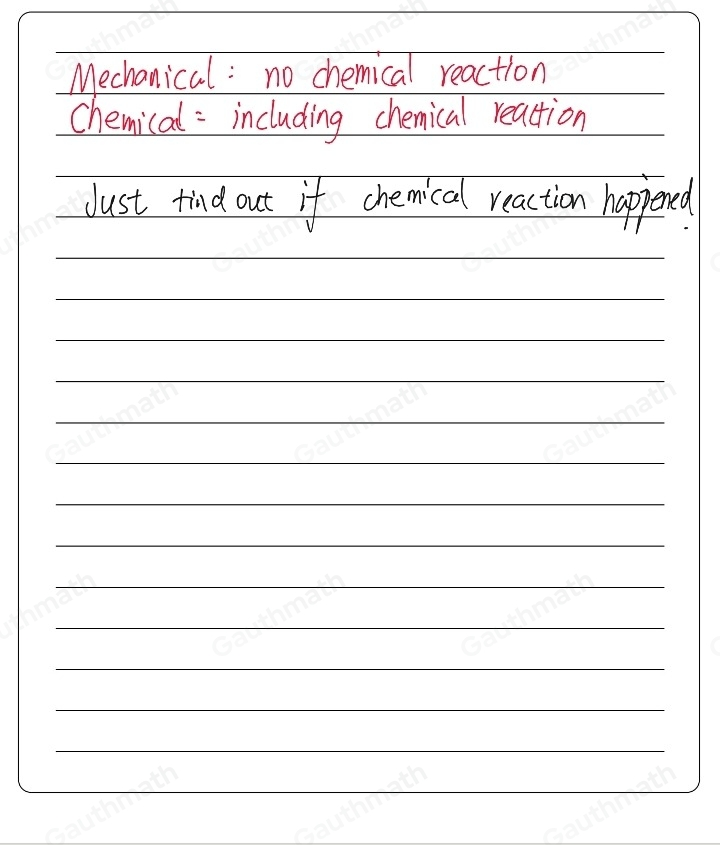 Mechanical: no chemical reaction
Chemical: including chemical reaction
Just find out if chemical reaction happened.
Gauthmath